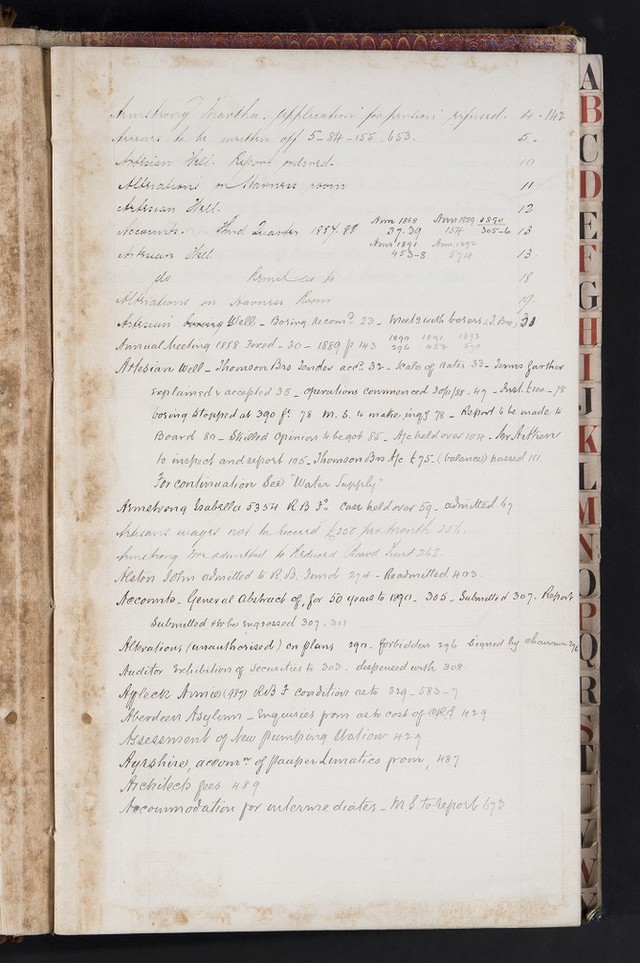 Armstrong Martha. Application for pension refused. 4 - 142
Arrears to be written off 5 - 84 - 155 . 653. 5.
Artesian Well. Report ordered. 10
Alterations on Nurses room 11
Artesian Well. 12
Accounts. Third Quarter 1887.88 Ann 1888 37.39 Ann 1889 154 1890 305-6 13
Artesian Well Ann 1891 453-8 Ann 1892 574 13.
do Remit as to 18
Alterations on Nurses Room 19.
Artesian boring Well - Boring recomd. 23 - with borers (T. Bros) 31
Annual Meeting 1888 Fixed - 30 - 1889 p 143 1890 296 1891 452 1892 570
Artesian Well - Thomson Bros Tender accd. 32 - Scale of rates 33 - Terms further
explained & accepted 35 - operations commenced 30/11/88 - 49 - Inst. £100 - 78
boring stopped at 390 ft. 78 M.S. to make inqy 78 - Report to be made to
Board 80 - Skilled opinion to be got 85 - A/c held over 104 - Mr Aitken
to inspect and report 105 - Thomson Bros A/c £75 - (balance) passed 111
For continuation See "Water Supply"
Armstrong Isabella 5354 R B Fd. Case held over 59 - admitted 67
Artisans wages not to exceed £250 per month 256.
Armstrong Wm admitted to Reduced Board Fund 263.
Alston John admitted to R. B. Fund 274 - Readmitted 403.
Accounts - General Abstract of, for 50 years to 1890 - 305 - Submitted 307. Report
Submitted & to be engrossed 307. 311
Alterations (unauthorised) on plans 290 - forbidden 296 Signed by Chairman 296
Auditor Exhibition of Securities to 303. dispensed with 308
Afleck Annie (987) R B F conditions as to 329 - 583 - 7
Aberdeen Asylum - Enquiries from as to cost of 429
Assessment of New Pumping Station 429
Ayrshire, accomn. of pauper Lunatics from, 487
Architects fees 489
Accommodation for intermediates - M.S. to report 673
A
B
C
D
E
F
G
H
I
J
K
L
M
N
O
P
Q
R
S
T
U
V
W